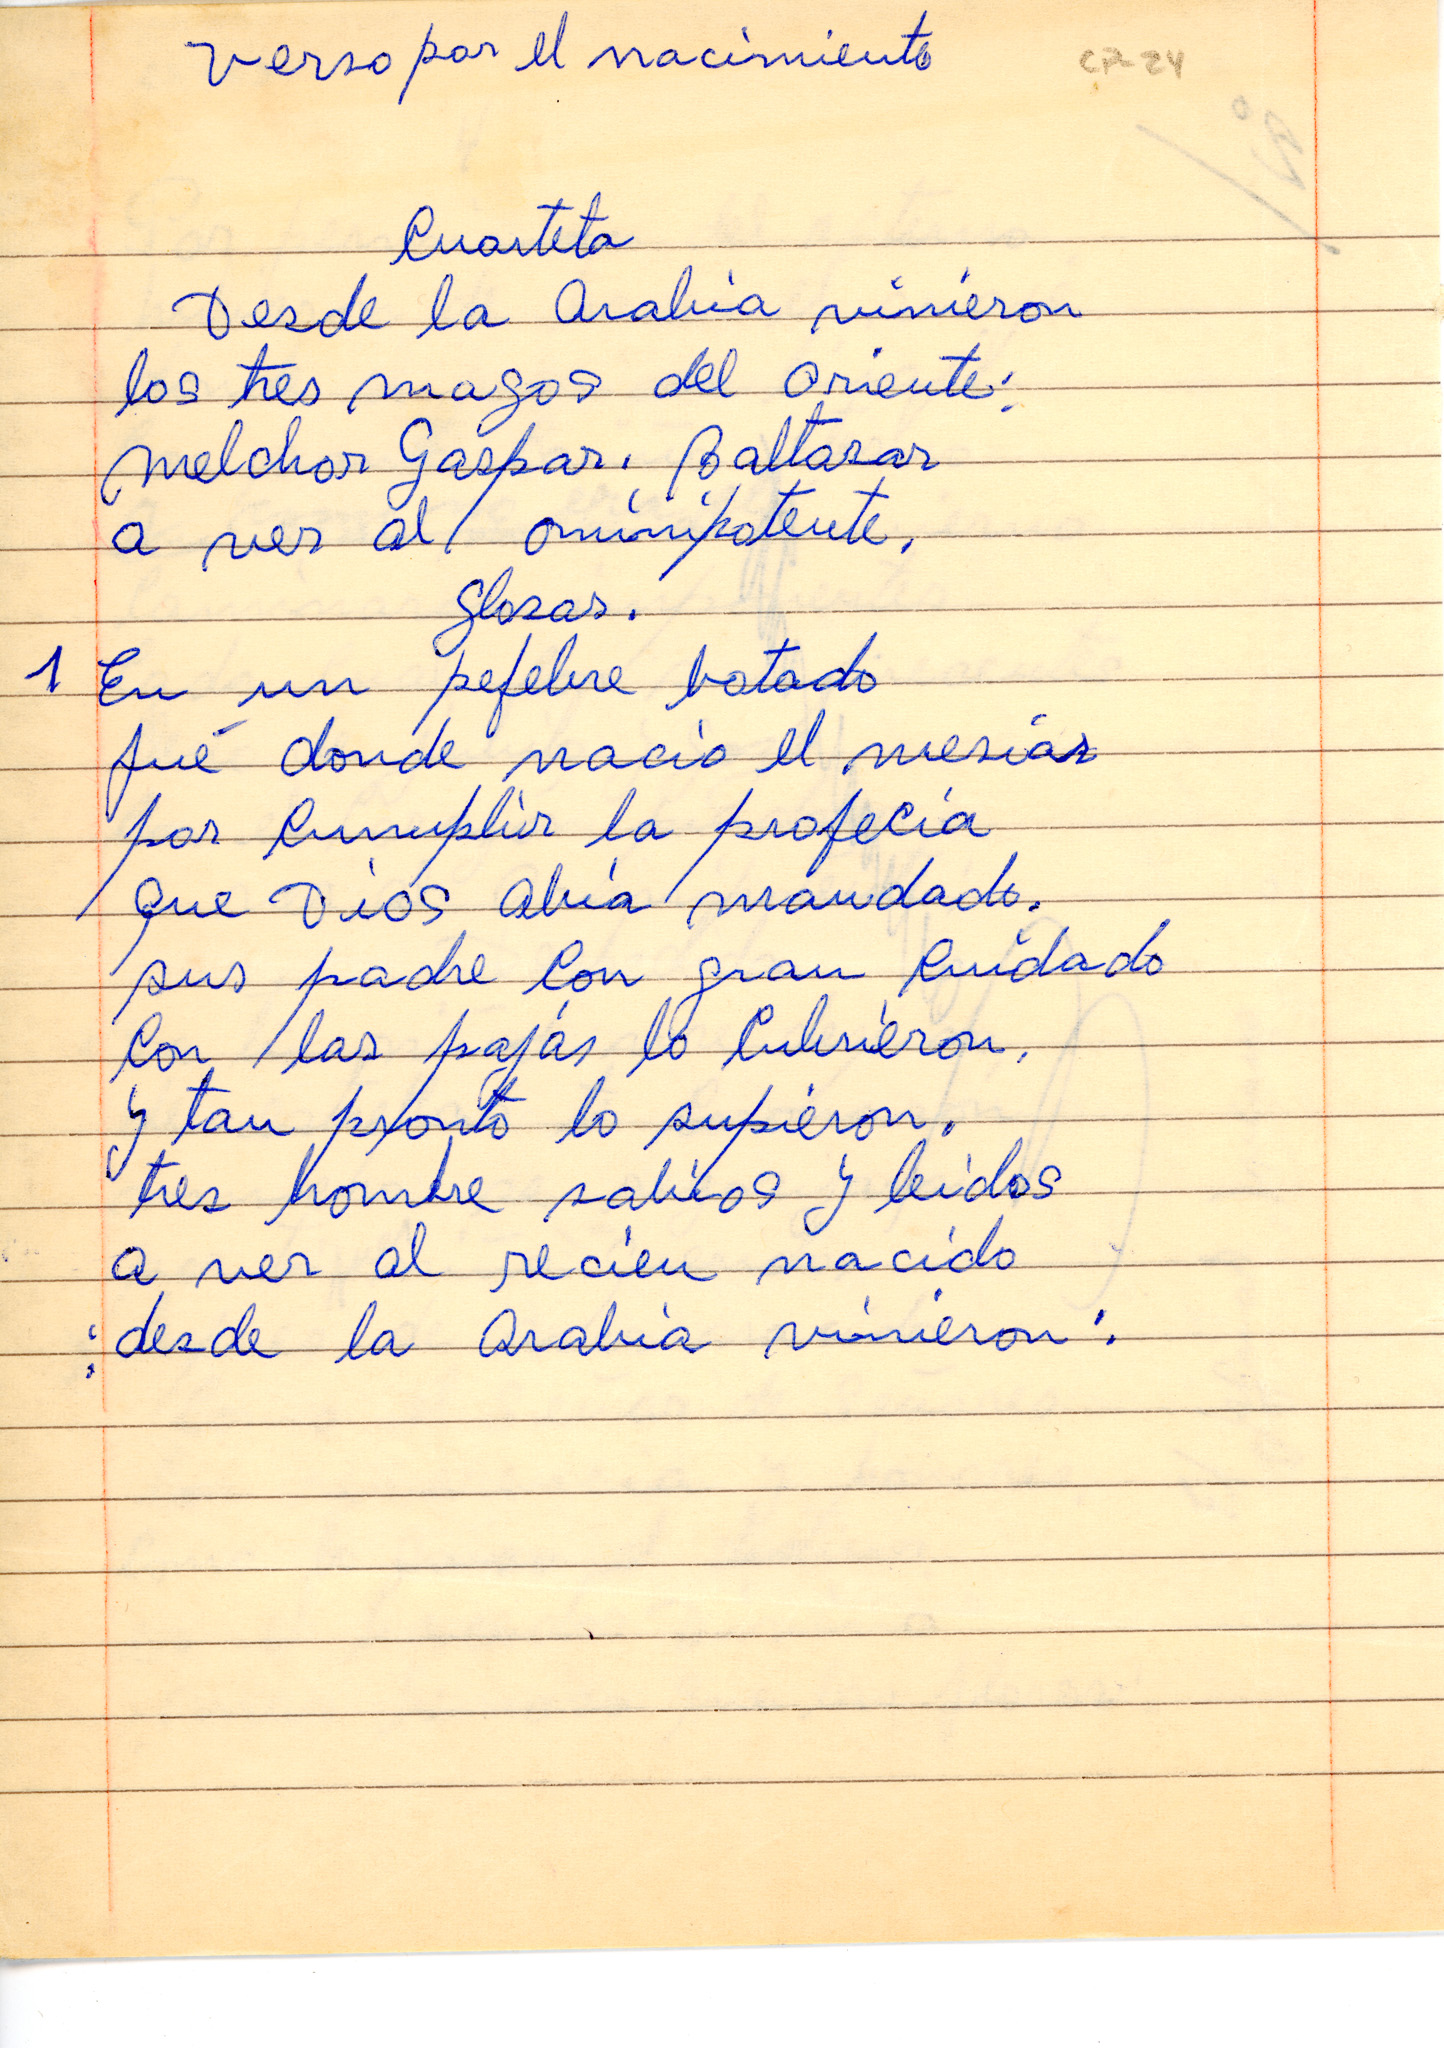 verso por el nacimiento
CP-24
Cuarteta
Desde la Arabia vinieron
los tres magos del oriente:
melchor Gaspar. Baltasar
a ver al ominipotente.
glosas.
1 En un pefebre botado
fué donde nacio el mesias
por cumplir la profecia
que Dios abia mandado.
sus padre con gran cuidado
con las pajás lo cubrieron.
y tan pronto lo supieron.
tres hombre sabios y leidos
a ver al recien nacido
: desde la Arabia vinieron: